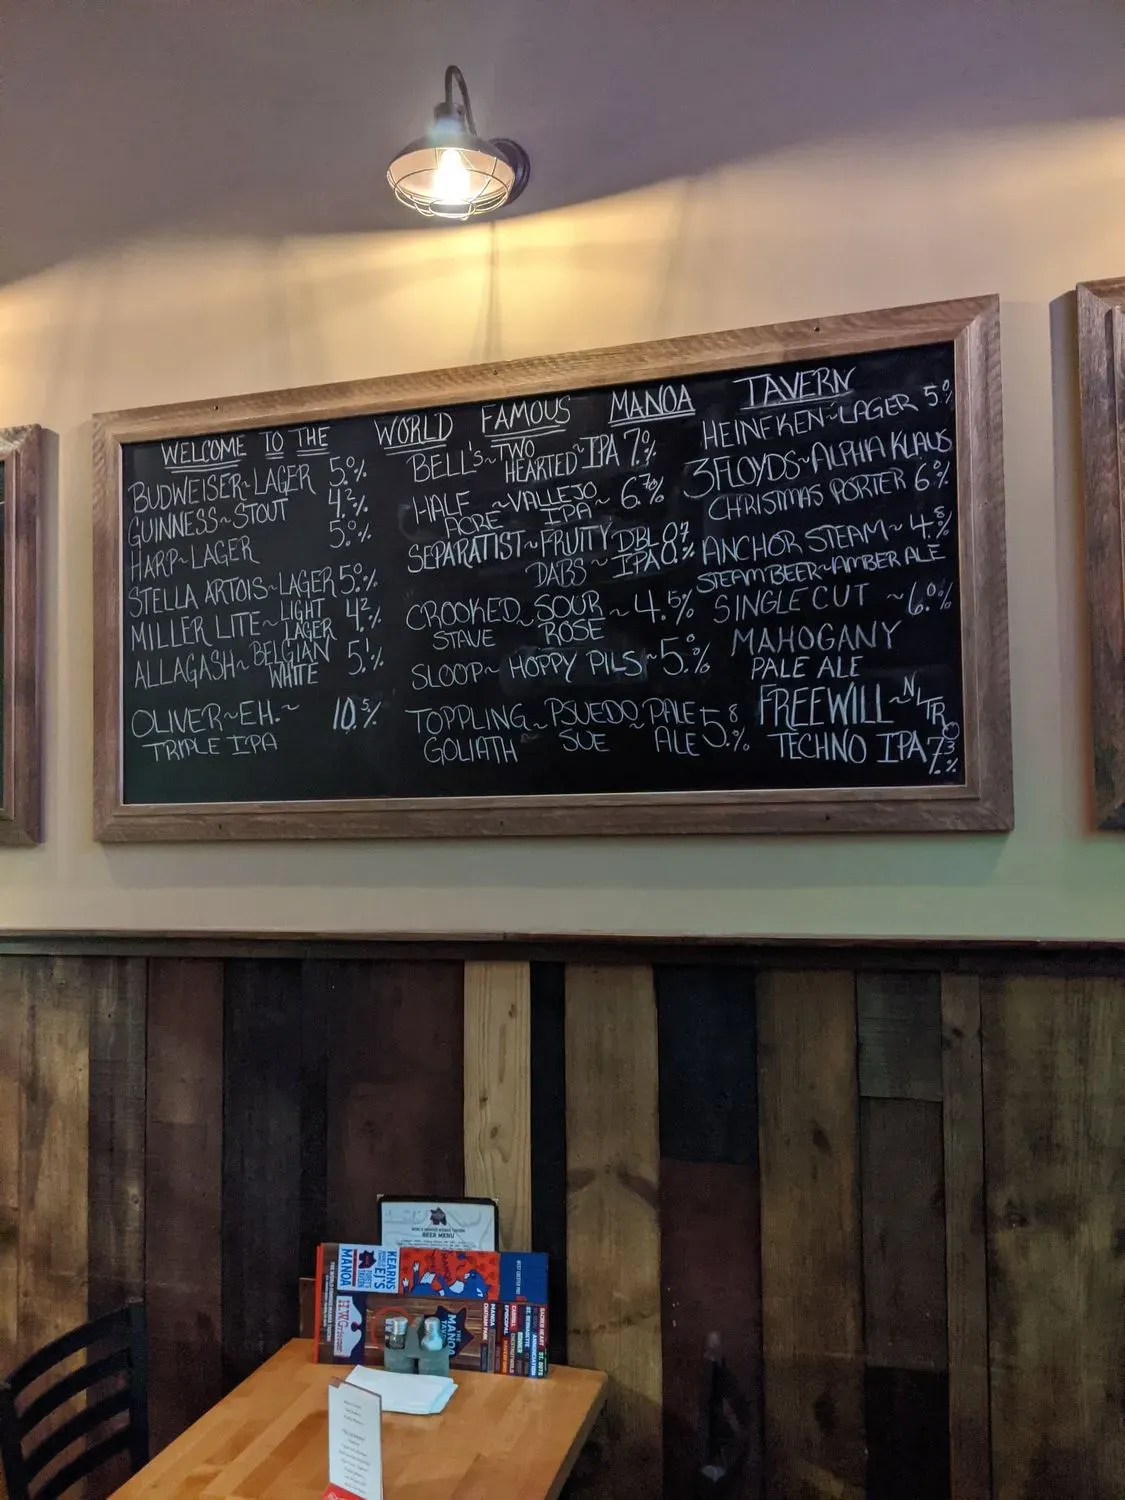 WELCOME TO THE WORLD FAMOUS MANOA TAVERN
BUDWEISER~LAGER 5.0%
GUINNESS~STOUT 4.2%
HARP~LAGER 5.0%
STELLA ARTOIS~LAGER 5.0%
MILLER LITE~LIGHT LAGER 4.2%
ALLAGASH~BELGIAN WHITE 5.1%
OLIVER~EH.~ 10.5%
TRIPLE IPA
BELL'S~TWO HEARTED~IPA 7.%
HALF ACRE~VALLEJO IPA~ 6.7%
SEPARATIST~FRUITY DABS~DBL IPA 8.7%
CROOKED STAVE~SOUR ROSE~4.5%
SLOOP~HOPPY PILS~5.0%
TOPPLING GOLIATH~PSUEDO SUE~PALE ALE 5.8%
HEINEKEN~LAGER 5.0%
3 FLOYDS~ALPHA KLAUS
CHRISTMAS PORTER 6.0%
ANCHOR STEAM~4.8%
STEAM BEER~AMBER ALE
SINGLE CUT ~6.0%
MAHOGANY
PALE ALE
FREEWILL~NITRO
TECHNO IPA 7.3%
BEER MENU
MANOA
KEARNS
THE MANOA